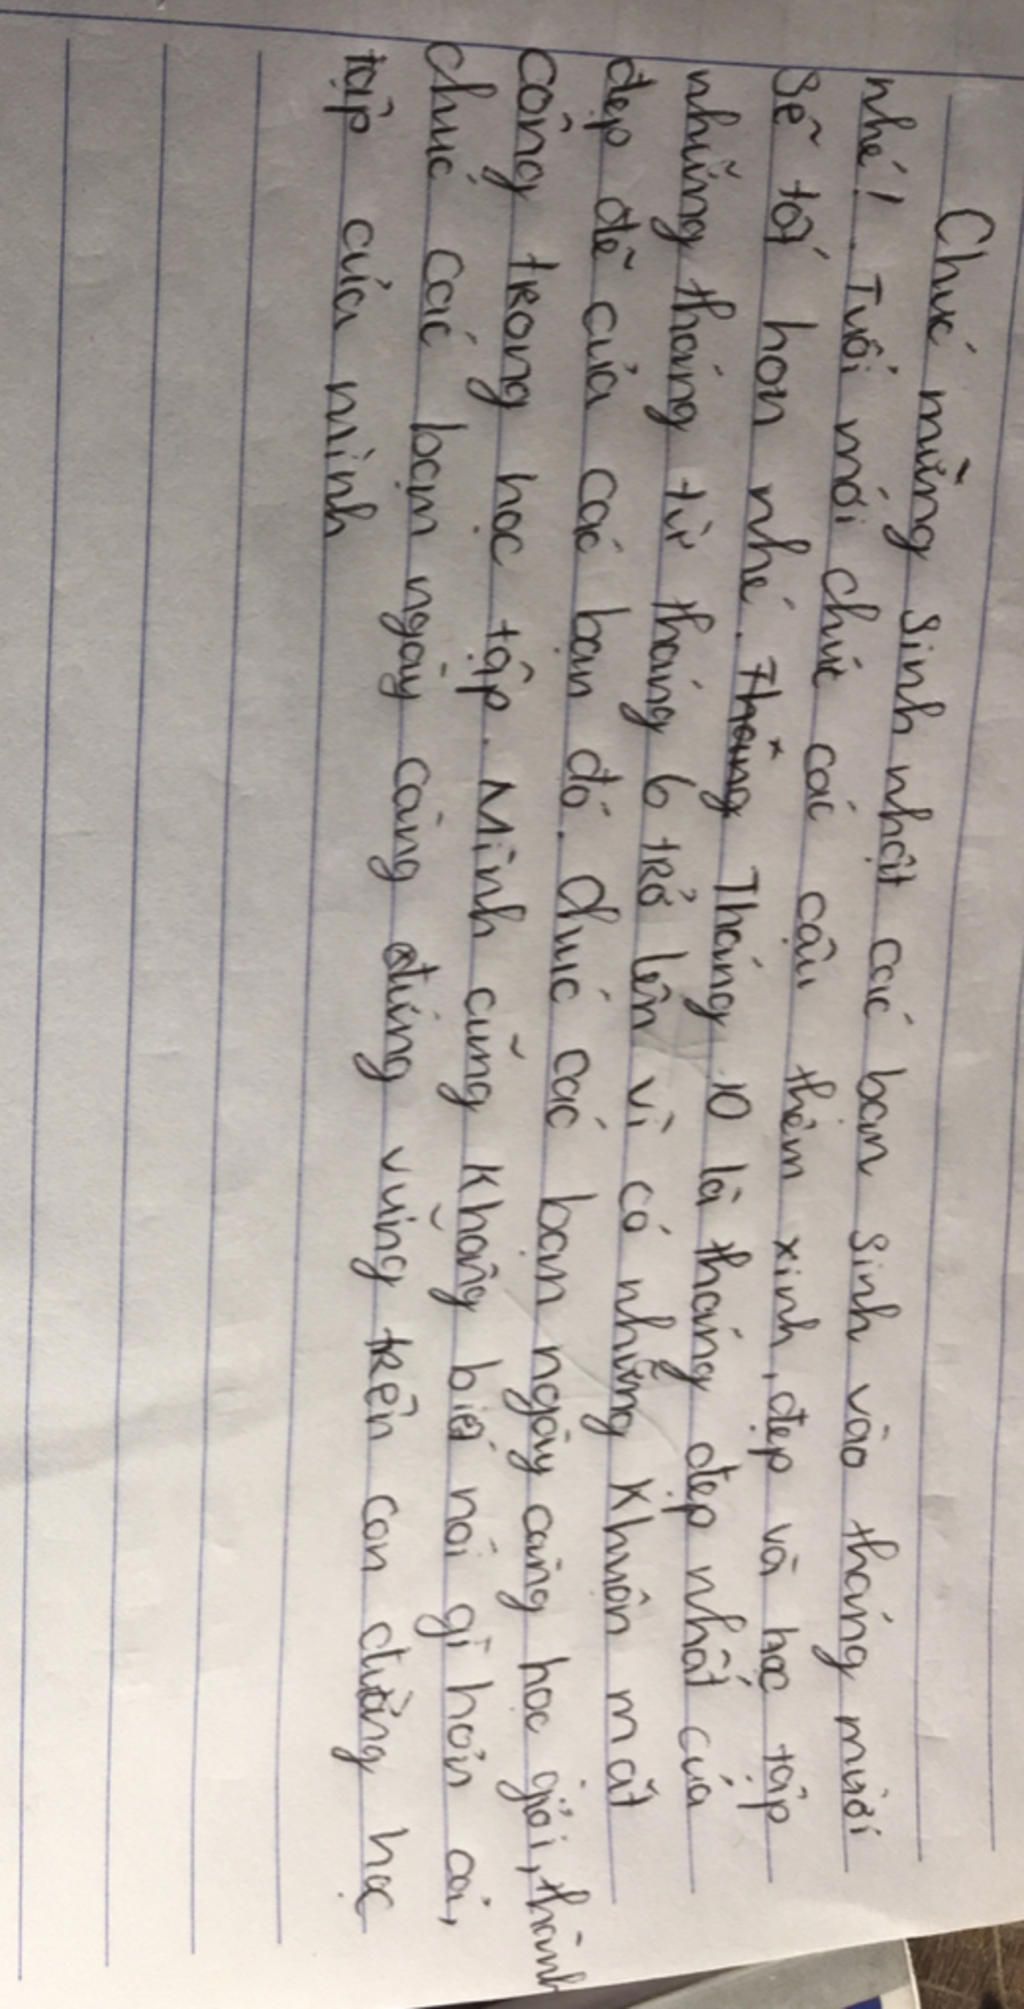 Chúc mừng sinh nhật các bạn sinh vào tháng mười
nhé! Tuổi mới chúc các cậu thêm xinh, đẹp và học tập
sẽ tốt hơn nhé. Thăng Tháng 10 là tháng đẹp nhất của
những tháng từ tháng 6 trở lên vì có những khuôn mặt
đẹp đẽ của các bạn đó. Chúc các bạn ngày càng học giỏi, thành
công trong học tập. Mình cũng không biết nói gì hơn cả,
chúc các bạn ngày càng đứng vững trên con đường học
tập của mình